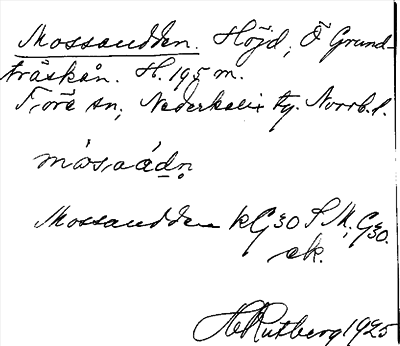 Mossaudden. Höjd, Ö Grund-
träskån. H. 195 m.
Töre sn, Nederkalix tg. Norrb. l.
Mossaudden kG30 S M, G30.
ek.
H Rutberg 1925